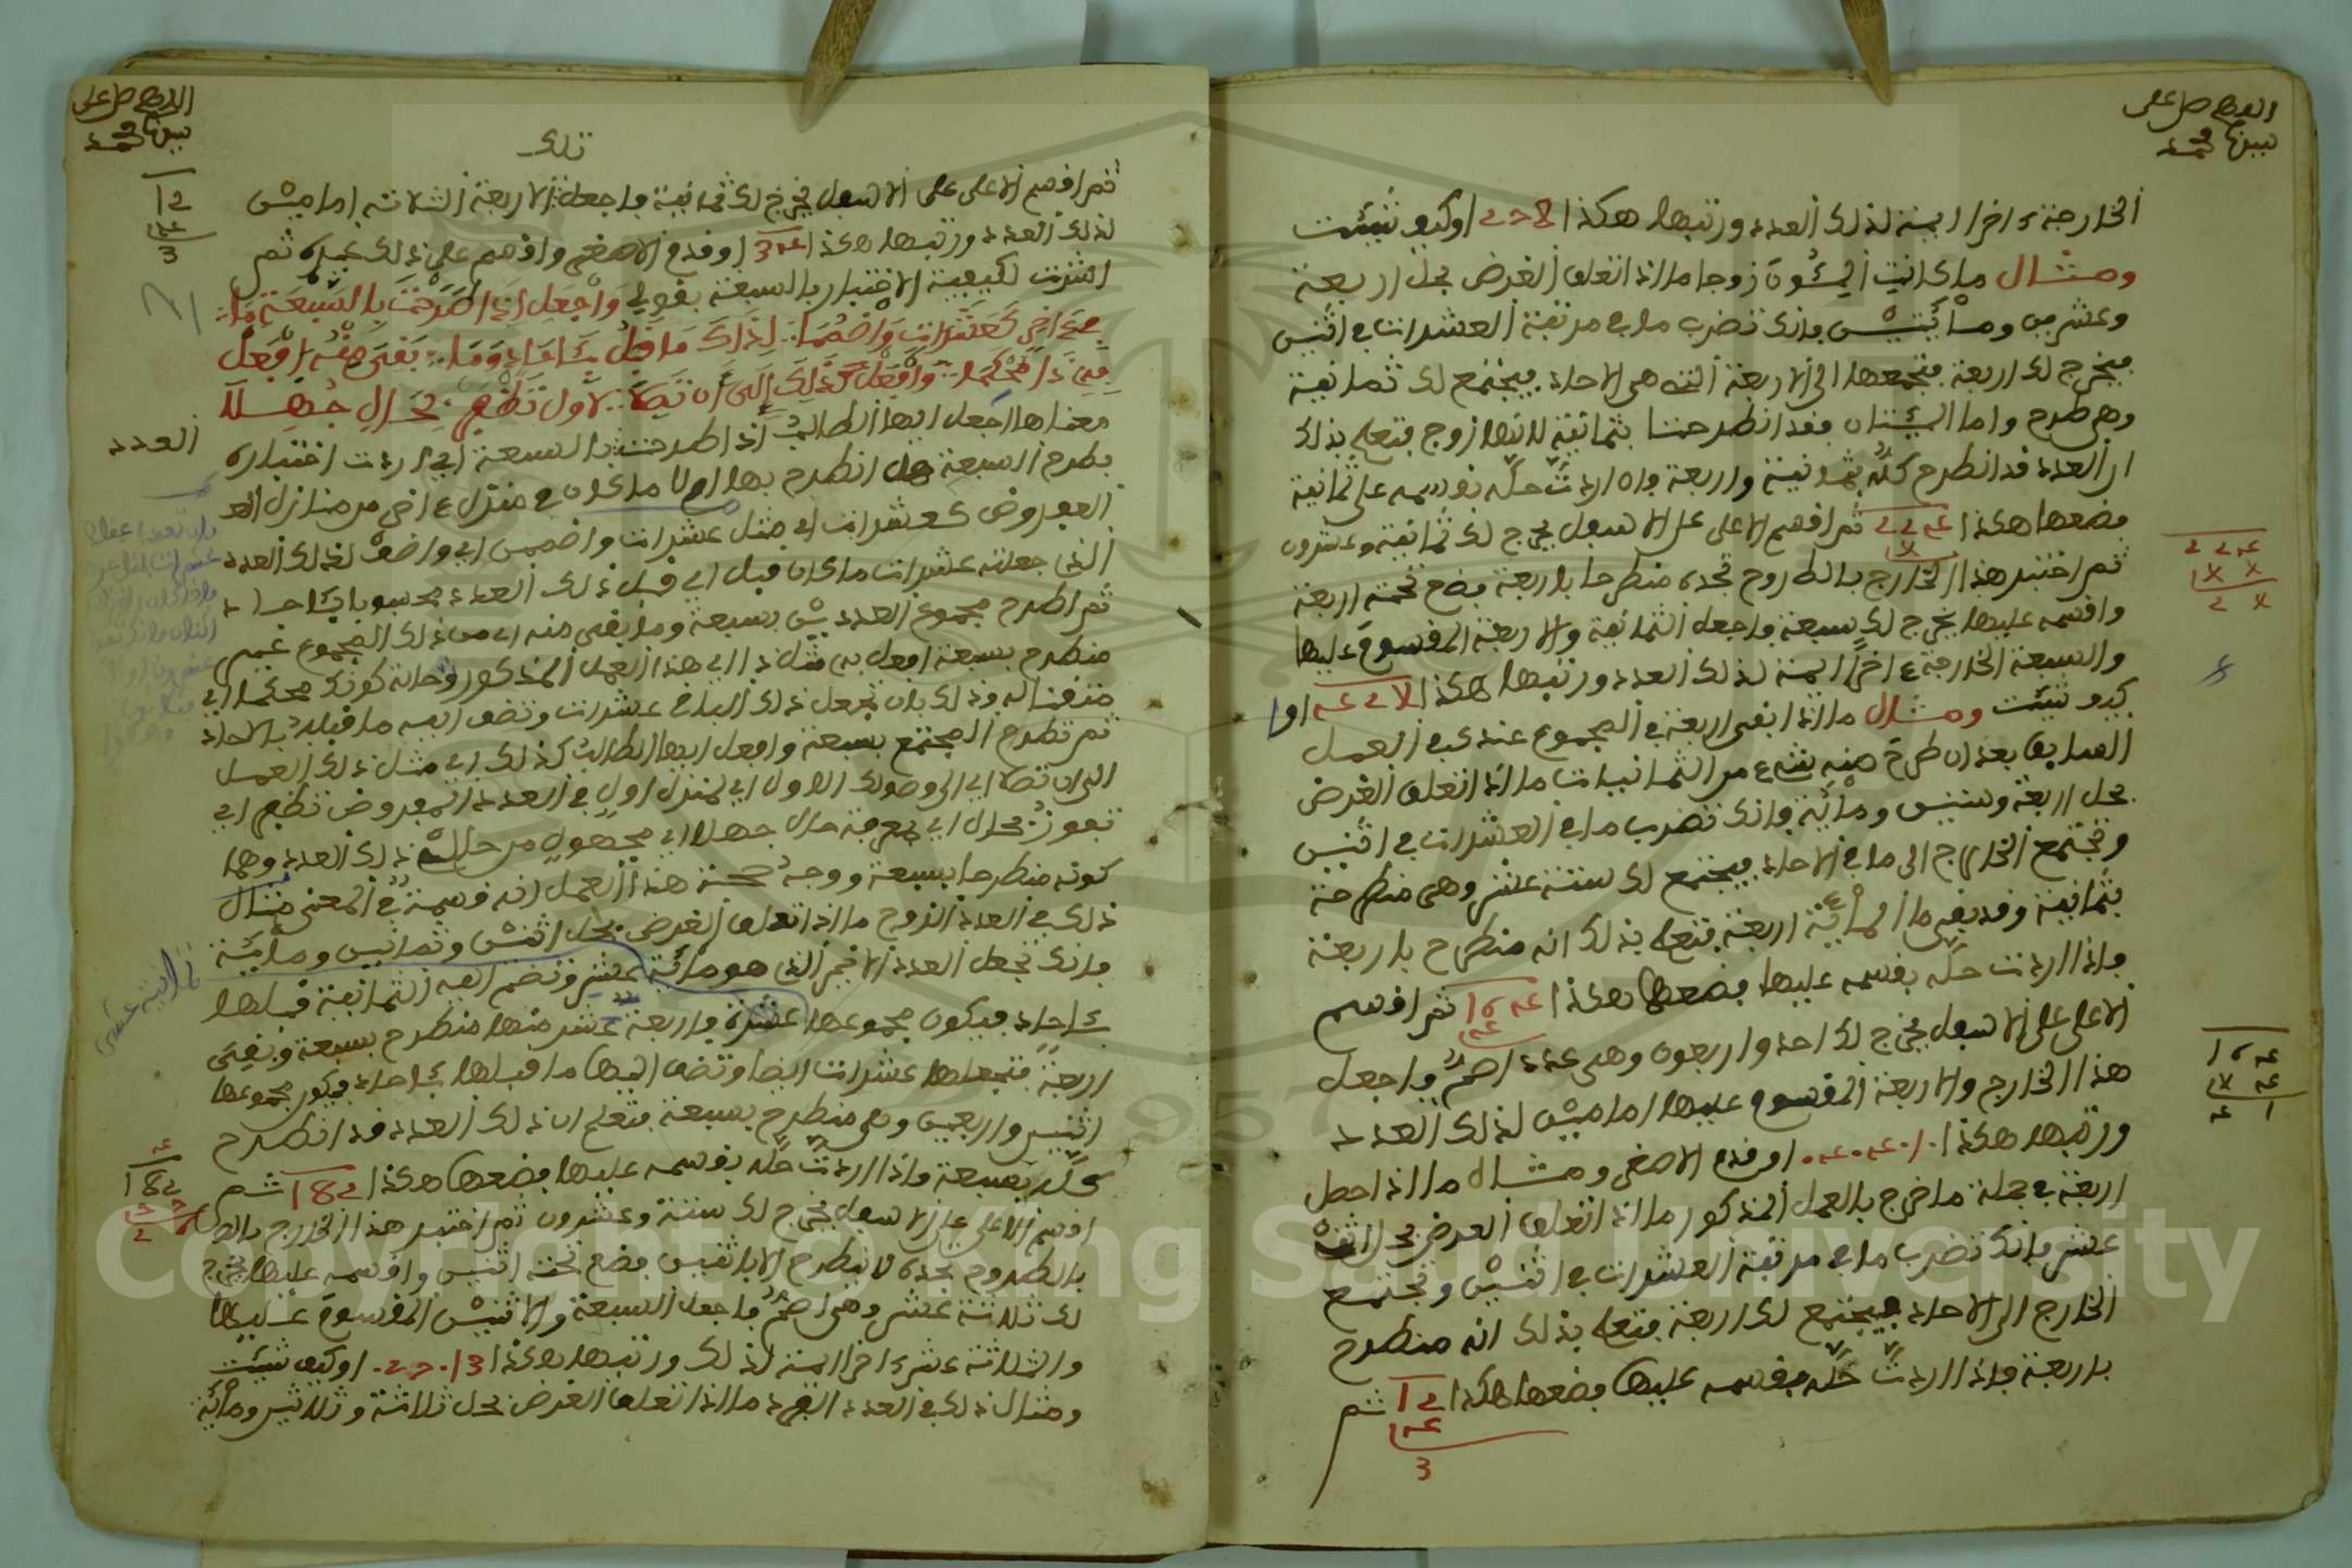 اللهم صل على
سيدنا محمد
الخارجة اخرا ايمة لذلك العدد ورتبها هكذا او كيف شئت
ومثال ما كانت المئون زوجا ما اذا تعلق الغرض بحل اربعة
وعشرين ومائتين فانك تضرب ما في مرتبة العشرات في اثنين
فيخرج لك اربعة فتجمعها الى الاربعة التي هي الاحاد فيجتمع لك ثمانية
وهي طرح واما المئتان فقد انطرحتا بثمانية لانها زوج فتعلم بذلك
ان العدد قد انطرح كله بثمانية واربعة وان اردت حله بقسمه على ثمانية
فضعها هكذا ٢٢٤ ثم اقسم الاعلى على الاسفل يخرج لك ثمانية وعشرون
ثم اختبر هذا الخارج بالطروح تجده منطرحا باربعة فضع تحته اربعة
واقسمه عليها يخرج لك سبعة فاجعل الثمانية والاربعة المقسوم عليها
والسبعة الخارجة اخرا ايمة لذلك العدد ورتبها هكذا او
كيف شئت ومثال ما اذا بقي اربعة في المجموع عندك في العمل
السابق بعد ان طرح منه شيء من الثمانيات ما اذا تعلق الغرض
بحل اربعة وستين ومائة فانك تضرب ما في العشرات في اثنين
وتجتمع الخارج الى ما في الاحاد فيجتمع لك ستة عشر وهي منطرحة
بثمانية وقد بقي ما المائة اربعة فتعلم بذلك انه منطرح باربعة
فاذا اردت حله بقسمه عليها فضعها هكذا ثم اقسم
الاعلى على الاسفل يخرج لك احد واربعون وهي عدد اصم فاجعل
هذا الخارج والاربعة المقسوم عليها امامين لذلك العدد
ورتبها هكذا او قدم الاصغر ومثال ما اذا حصل
اربعة في جملة ما خرج بالعمل المذكور ما اذا تعلق الغرض بحل اثني
عشر فانك تضرب ما في مرتبة العشرات في اثنين وتجتمع
الخارج الى الاحاد فيجتمع لك اربعة فتعلم بذلك انه منطرح
باربعة فاذا اردت حله بقسمه عليها فضعها هكذا ثم
اللهم صل على
سيدنا محمد
ثم اقسم الاعلى على الاسفل يخرج لك ثمانية فاجعل الاربعة الثلاثة امامين
لذلك العدد ورتبها هكذا او قدم الاصغر واقسم على ذلك غيره ثم
اشرت لكيفية الاختبار بالسبعة بقولي واجعل اذا طرحت بالسبعة ما
في اخر كعشرات واضمما لذاك ما قبل كاحاد وما بقي منه افعل
به ذا محكما وافعل كذلك الى ان تصل لاول تظفر بحال جهلا
معناها اجعل ايها الطالب اذا طرحت بالسبعة اي اردت اختباره
بطرح السبعة هل انطرح بها اولا ما كان في منزل اخر من منازل العدد
المفروض كعشرات اي مثل عشرات واضممن اي واضف لذلك العدد
الذي جعلته عشرات ما كان قبل اي قبل ذلك العدد محسوبا كاحاد
ثم اطرح مجموع العددين بسبعة وما بقي منه اي من ذلك المجموع غير
منطرح بسبعة افعل به مثل ذا اي هذا العمل المذكور وحالة كونك محكما اي
متقنا له وذلك بان تجعل ذلك الباقي عشرات وتضف اليه ما قبله كالاحاد
ثم تطرح المجتمع بسبعة وافعل ايها الطالب كذلك اي مثل ذلك العمل
الى ان تصل اي الى وصولك الاول اي لمنزل اول في العدد المفروض تظفر اي
تفوز بحال اي بمعرفة حال جهلا اي مجهول من حال ذلك العدد وهما
كونه منطرحا بسبعة ووجه صحة هذا العمل انه قسمة في المعنى مثال
ذلك في العدد الزوج ما اذا تعلق الغرض بحل اثنين وثمانين ومائة
فانك تجعل العدد الاخر الذي هو مائة عشر وتضم اليه الثمانية قبلها
كاحاد فيكون مجموعها عشرة واربعة عشر منها منطرح بسبعة وبقي
اربعة فتجعلها عشرات ايضا وتضف اليها ما قبلها كاحاد فيكون مجموعها
اثنين واربعين وهي منطرح بسبعة فتعلم ان ذلك العدد قد انطرح
كله بسبعة فاذا اردت حله بقسمه عليها فضعها هكذا 182 ثم
اقسم الاعلى على الاسفل يخرج لك ستة وعشرون ثم اختبر هذا الخارج بالط
بالطروح تجده لا ينطرح الا باثنين فضع تحته اثنين واقسمه عليها يخرج
لك ثلاثة عشر وهي اصم فاجعل السبعة والاثنين المقسوم عليها
والثلاثة عشر اخرا ايمة لذلك ورتبها هكذا او كيف شئت
ومثال ذلك في العدد الفرد ما اذا تعلق الغرض بحل ثلاثة وثلاثين ومائة
العدد
ثمانية عشر
Copyright © King Saud University
1957